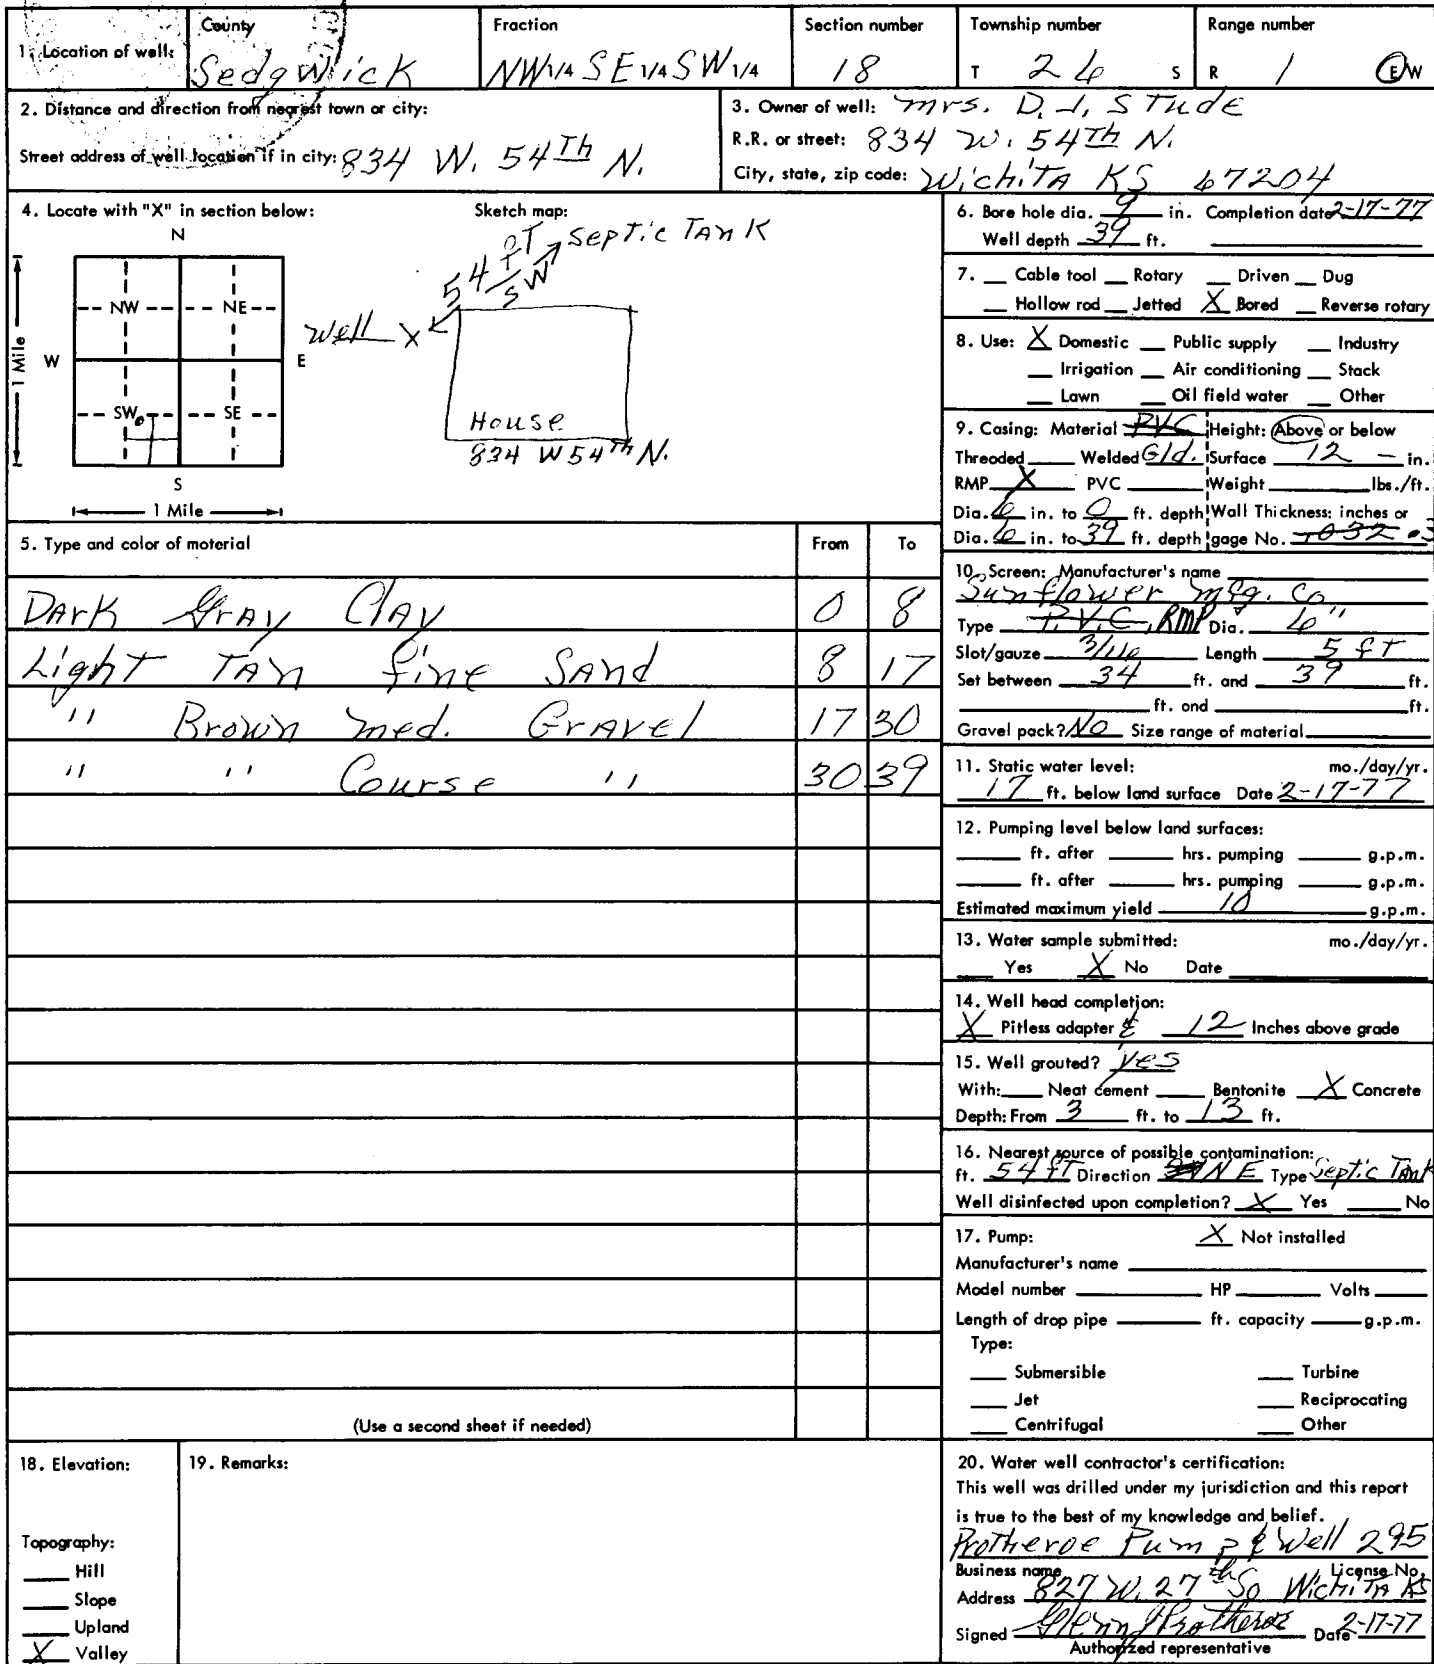 1. Location of well: County Fraction Section number Township number Range number
Sedgwick NW 1/4 SE 1/4 SW 1/4 18 T 26 S R 1 E/W
2. Distance and direction from nearest town or city:
Street address of well location if in city: 834 W. 54Th N.
3. Owner of well: Mrs. D. J. STUDE
R.R. or street: 834 W. 54Th N.
City, state, zip code: WichiTA KS 67204
4. Locate with "X" in section below: Sketch map:
N
NW NE
W E
SW SE
S
1 Mile
1 Mile
54 FT SW
Septic TANK
Well X
House
834 W 54Th N.
5. Type and color of material From To
DARK GrAY ClAY 0 8
Light TAN fine SANd 8 17
" Brown med. GrAVel 17 30
" " Course " 30 39
(Use a second sheet if needed)
6. Bore hole dia. 9 in. Completion date 2-17-77
Well depth 39 ft.
7. Cable tool Rotary Driven Dug
Hollow rod Jetted X Bored Reverse rotary
8. Use: X Domestic Public supply Industry
Irrigation Air conditioning Stock
Lawn Oil field water Other
9. Casing: Material PVC Height: Above or below
Threaded Welded Gld. Surface 12 in.
RMP X PVC Weight lbs./ft.
Dia. 6 in. to 0 ft. depth Wall Thickness: inches or
Dia. 6 in. to 39 ft. depth gage No. .032 .3
10. Screen: Manufacturer's name
Sunflower mfg. Co
Type P.V.C, RMP Dia. 6"
Slot/gauze 3/16 Length 5 fT
Set between 34 ft. and 39 ft.
ft. and ft.
Gravel pack? NO Size range of material
11. Static water level: mo./day/yr.
17 ft. below land surface Date 2-17-77
12. Pumping level below land surfaces:
ft. after hrs. pumping g.p.m.
ft. after hrs. pumping g.p.m.
Estimated maximum yield 10 g.p.m.
13. Water sample submitted: mo./day/yr.
Yes X No Date
14. Well head completion:
X Pitless adapter & 12 Inches above grade
15. Well grouted? yes
With: Neat cement Bentonite X Concrete
Depth: From 3 ft. to 13 ft.
16. Nearest source of possible contamination:
ft. 54 fT Direction NE Type Septic TANK
Well disinfected upon completion? X Yes No
17. Pump: X Not installed
Manufacturer's name
Model number HP Volts
Length of drop pipe ft. capacity g.p.m.
Type:
Submersible Turbine
Jet Reciprocating
Centrifugal Other
18. Elevation:
Topography:
Hill
Slope
Upland
X Valley
19. Remarks:
20. Water well contractor's certification:
This well was drilled under my jurisdiction and this report
is true to the best of my knowledge and belief.
Protheroe Pump & Well 295
Business name License No.
Address 827 W. 27th So WichiTA KS
Signed Glenn J Protheroe Date 2-17-77
Authorized representative